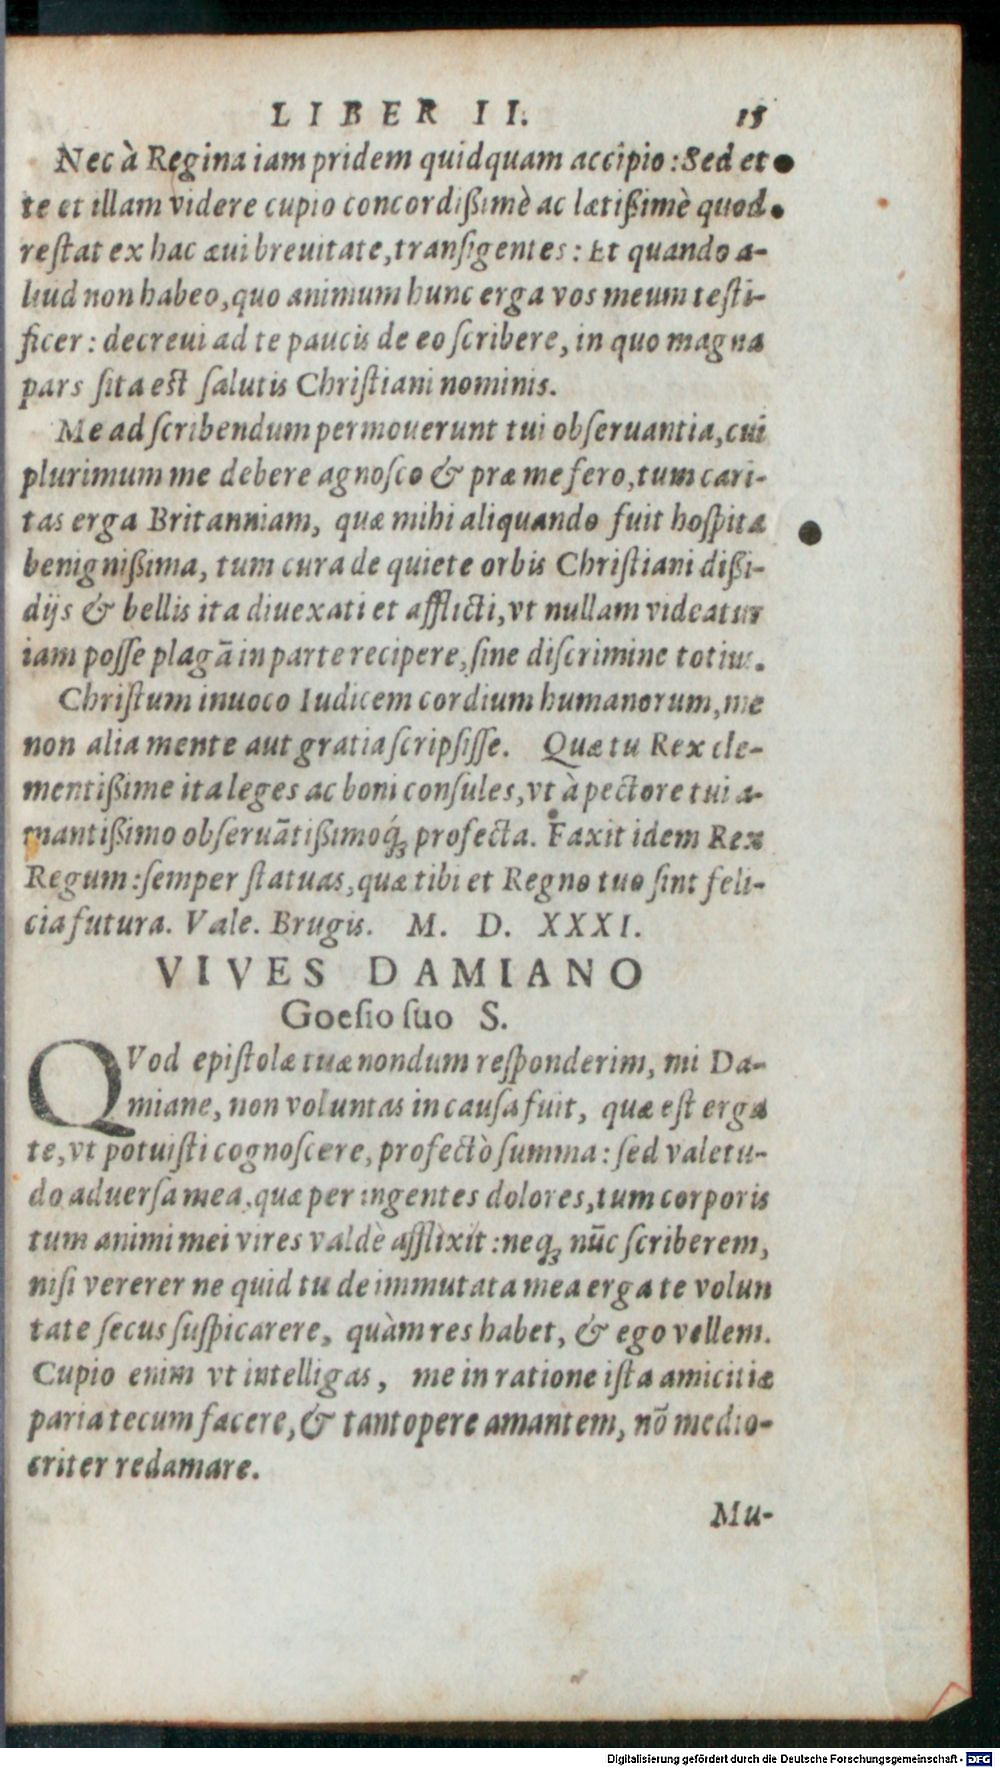 LIBER II. 15
Nec à Regina iam pridem quidquam accipio: Sed et
te et illam videre cupio concordißimè ac lætißimè quod
restat ex hac æui breuitate, transigentes: Et quando a-
liud non habeo, quo animum hunc erga vos meum testi-
ficer: decreui ad te paucis de eo scribere, in quo magna
pars sita est salutis Christiani nominis.
Me ad scribendum permouerunt tui obseruantia, cui
plurimum me debere agnosco & præ me fero, tum cari-
tas erga Britanniam, quæ mihi aliquando fuit hospita
benignißima, tum cura de quiete orbis Christiani dißi-
dijs & bellis ita diuexati et afflicti, vt nullam videatur
iam posse plagā in parte recipere, sine discrimine totius.
Christum inuoco Iudicem cordium humanorum, me
non alia mente aut gratia scripsisse. Quæ tu Rex cle-
mentißime ita leges ac boni consules, vt à pectore tui a-
mantißimo obseruātißimoq́ꝫ profecta. Faxit idem Rex
Regum: semper statuas, quæ tibi et Regno tuo sint feli-
cia futura. Vale. Brugis. M. D. XXXI.
VIVES DAMIANO
Goesio suo S.
QVod epistolæ tuæ nondum responderim, mi Da-
miane, non voluntas in causa fuit, quæ est erga
te, vt potuisti cognoscere, profectò summa: sed valetu-
do aduersa mea, quæ per ingentes dolores, tum corporis
tum animi mei vires valdè afflixit: neqꝫ nūc scriberem,
nisi vererer ne quid tu de immutata mea erga te volun
tate secus suspicarere, quàm res habet, & ego vellem.
Cupio enim vt intelligas, me in ratione ista amicitiæ
paria tecum facere, & tantopere amantem, nō medio-
criter redamare.
Mu-
Digitalisierung gefördert durch die Deutsche Forschungsgemeinschaft - DFG